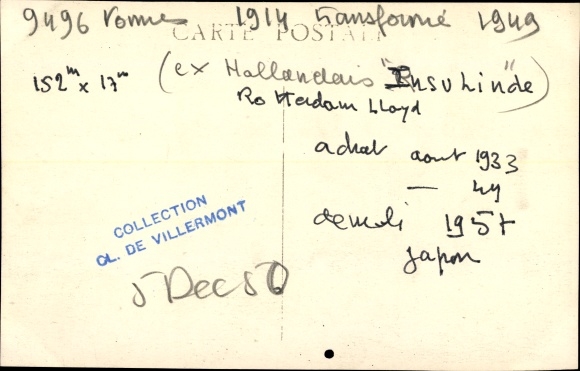 9496 Tonnes 1914 transformé 1949
CARTE POSTALE
152m x 17m (ex Hollandais "Insulinde")
Rotterdam Lloyd
achat aout 1933
— 49
demoli 1957
Japon
COLLECTION
OL. DE VILLERMONT
5 Dec 50